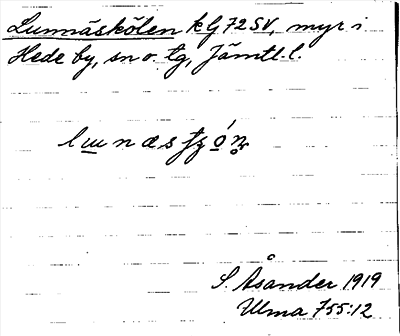 Lunnäskölen kG72SV, myr i
Hede by, sn o. tg, Jämtl. l.
S. Åsander 1919
Ulma 755:12